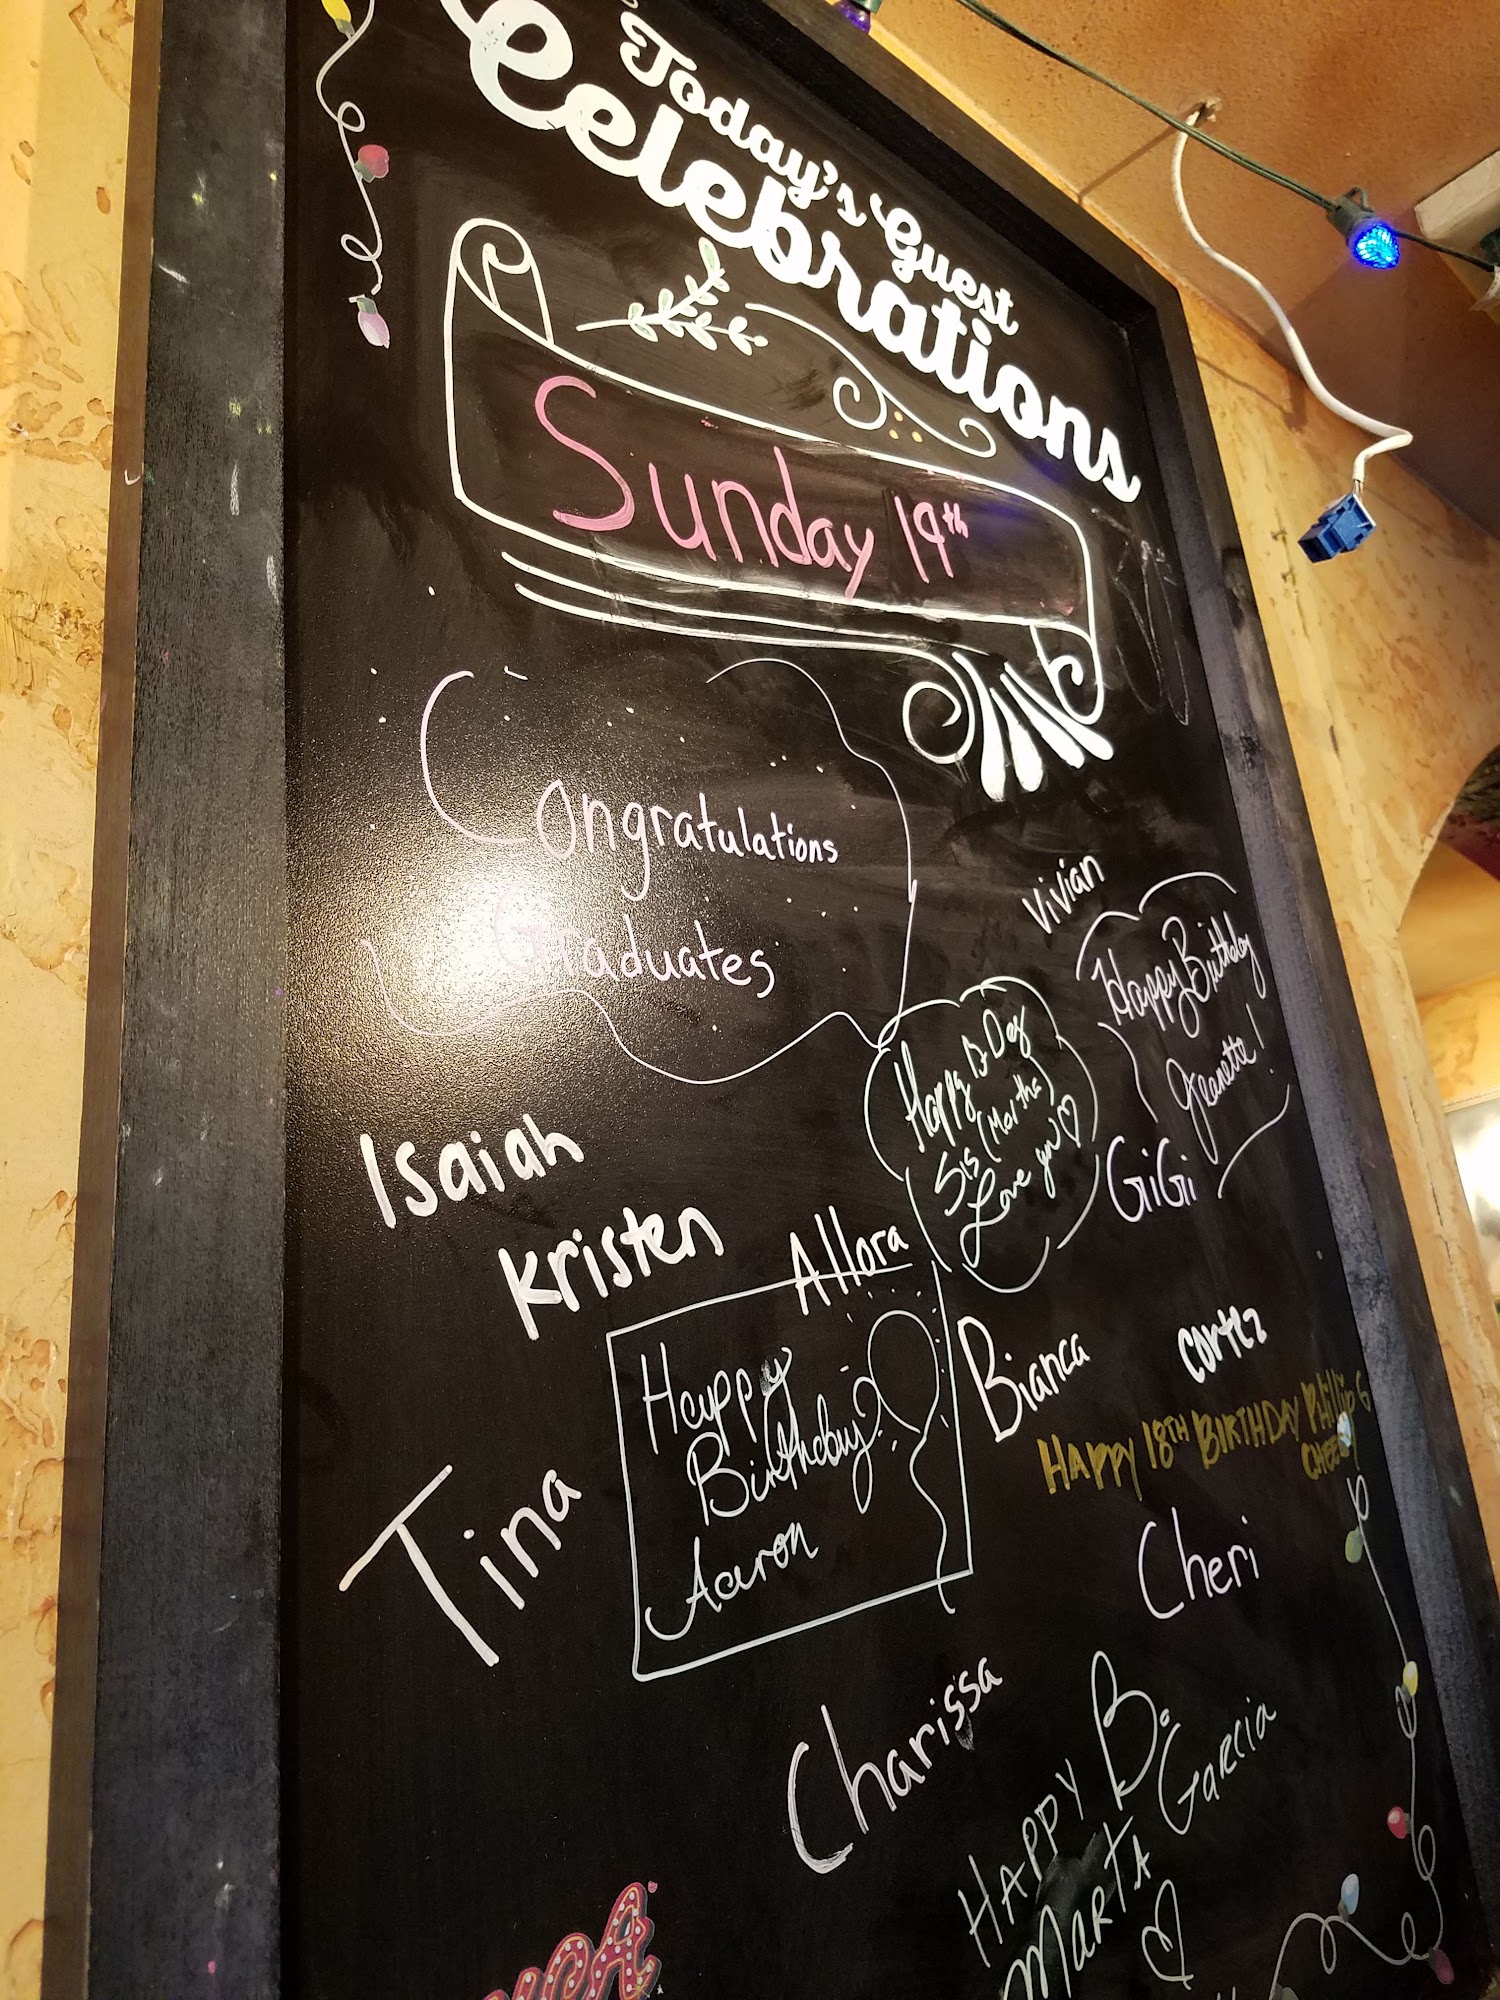 Today's Guest
Celebrations
Sunday 19th
Congratulations
Graduates
Vivian
Happy Birthday
Jeanette!
Happy B-Day
Sis (Martha)
Love you
GiGi
Isaiah
Kristen
Allora
Happy
Birthday
Aaron
Bianca
Cortez
HAPPY 18TH BIRTHDAY Phillip G
Tina
Cheri
Charissa
HAPPY B.
MARTA GARCIA